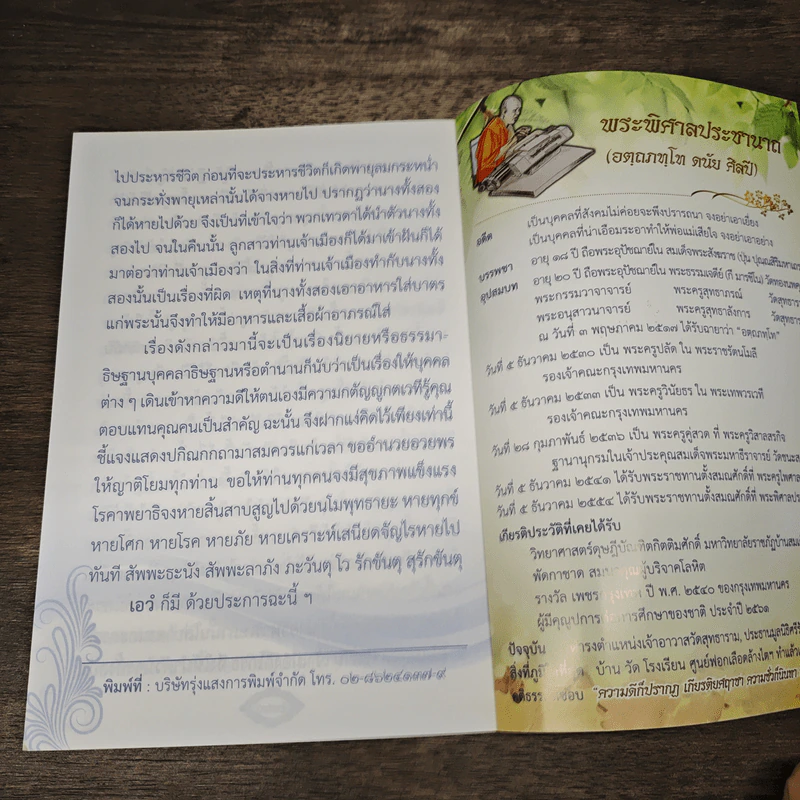 ไปประหารชีวิต ก่อนที่จะประหารชีวิตก็เกิดพายุลมกระหน่ำ
จนกระทั่งพายุเหล่านั้นได้จางหายไป ปรากฏว่านางทั้งสอง
ก็ได้หายไปด้วย จึงเป็นที่เข้าใจว่า พวกเทวดาได้นำตัวนางทั้ง
สองไป จนในคืนนั้น ลูกสาวท่านเจ้าเมืองก็ได้มาเข้าฝันก็ได้
มาต่อว่าท่านเจ้าเมืองว่า ในสิ่งที่ท่านเจ้าเมืองทำกับนางทั้ง
สองนั้นเป็นเรื่องที่ผิด เหตุที่นางทั้งสองเอาอาหารใส่บาตร
แก่พระนั้นจึงทำให้มีอาหารและเสื้อผ้าอาภรณ์ใส่
เรื่องดังกล่าวมานี้จะเป็นเรื่องนิยายหรือธรรมา-
ธิษฐานบุคคลาธิษฐานหรือตำนานก็นับว่าเป็นเรื่องให้บุคคล
ต่าง ๆ เดินเข้าหาความดีให้ตนเองมีความกตัญญูกตเวทีรู้คุณ
ตอบแทนคุณคนเป็นสำคัญ ฉะนั้น จึงฝากแง่คิดไว้เพียงเท่านี้
ชี้แจงแสดงปกิณกกถามาสมควรแก่เวลา ขออำนวยอวยพร
ให้ญาติโยมทุกท่าน ขอให้ท่านทุกคนจงมีสุขภาพแข็งแรง
โรคาพยาธิจงหายสิ้นสาบสูญไปด้วยนโมพุทธายะ หายทุกข์
หายโศก หายโรค หายภัย หายเคราะห์เสนียดจัญไรหายไป
ทันที สัพพะธะนัง สัพพะลาภัง ภะวันตุ โว รักขันตุ สุรักขันตุ
เอวํ ก็มี ด้วยประการฉะนี้ ฯ
พิมพ์ที่ : บริษัทรุ่งแสงการพิมพ์จำกัด โทร. ๐๒-๘๖๒๔๑๓๗-๙
พระพิศาลประชานาถ
(อตฺถภทฺโท ดนัย ศิลป์)
อดีต เป็นบุคคลที่สังคมไม่ค่อยจะพึงปรารถนา จงอย่าเอาเยี่ยง
เป็นบุคคลที่น่าเอือมระอาทำให้พ่อแม่เสียใจ จงอย่าเอาอย่าง
บรรพชา อายุ ๑๘ ปี ถือพระอุปัชฌาย์ใน สมเด็จพระสังฆราช
อุปสมบท อายุ ๒๐ ปี ถือพระอุปัชฌาย์ใน พระธรรมเจดีย์
พระกรรมวาจาจารย์ พระครูสุทธาภรณ์
พระอนุสาวนาจารย์ พระครูสุทธาลังการ
ณ วันที่ ๓ พฤษภาคม ๒๕๑๗ ได้รับฉายาว่า "อตฺถภทฺโท"
วันที่ ๕ ธันวาคม ๒๕๓๐ เป็น พระครูปลัด ใน พระราชรัตนโมลี
รองเจ้าคณะกรุงเทพมหานคร
วันที่ ๕ ธันวาคม ๒๕๓๓ เป็น พระครูวินัยธร ใน พระเทพวรเวที
รองเจ้าคณะกรุงเทพมหานคร
วันที่ ๒๘ กุมภาพันธ์ ๒๕๓๖ เป็น พระครูคู่สวด ที่ พระครูวิสาลสรกิจ
ฐานานุกรมในเจ้าประคุณสมเด็จพระมหาธีราจารย์
วันที่ ๕ ธันวาคม ๒๕๔๑ ได้รับพระราชทานตั้งสมณศักดิ์ที่
วันที่ ๕ ธันวาคม ๒๕๕๔ ได้รับพระราชทานตั้งสมณศักดิ์ที่
เกียรติประวัติที่เคยได้รับ
วิทยาศาสตร์ดุษฎีบัณฑิตกิตติมศักดิ์ มหาวิทยาลัยราชภัฏบ้านสม
พัดกาชาด ผู้บริจาคโลหิต
รางวัล เพชรกรุงเทพ ปี พ.ศ. ๒๕๔๐ ของกรุงเทพมหานคร
ผู้มีคุณูปการ การศึกษาของชาติ ประจำปี ๒๕๖๑
ปัจจุบัน ดำรงตำแหน่งเจ้าอาวาสวัดสุทธาราม, ประธานมูลนิธิ
บ้าน วัด โรงเรียน ศูนย์ฟอกเลือดล้างไตฯ
ชอบ "ความดีก็ปรากฏ เกียรติยศฤาชา ความชั่วก็นินทา